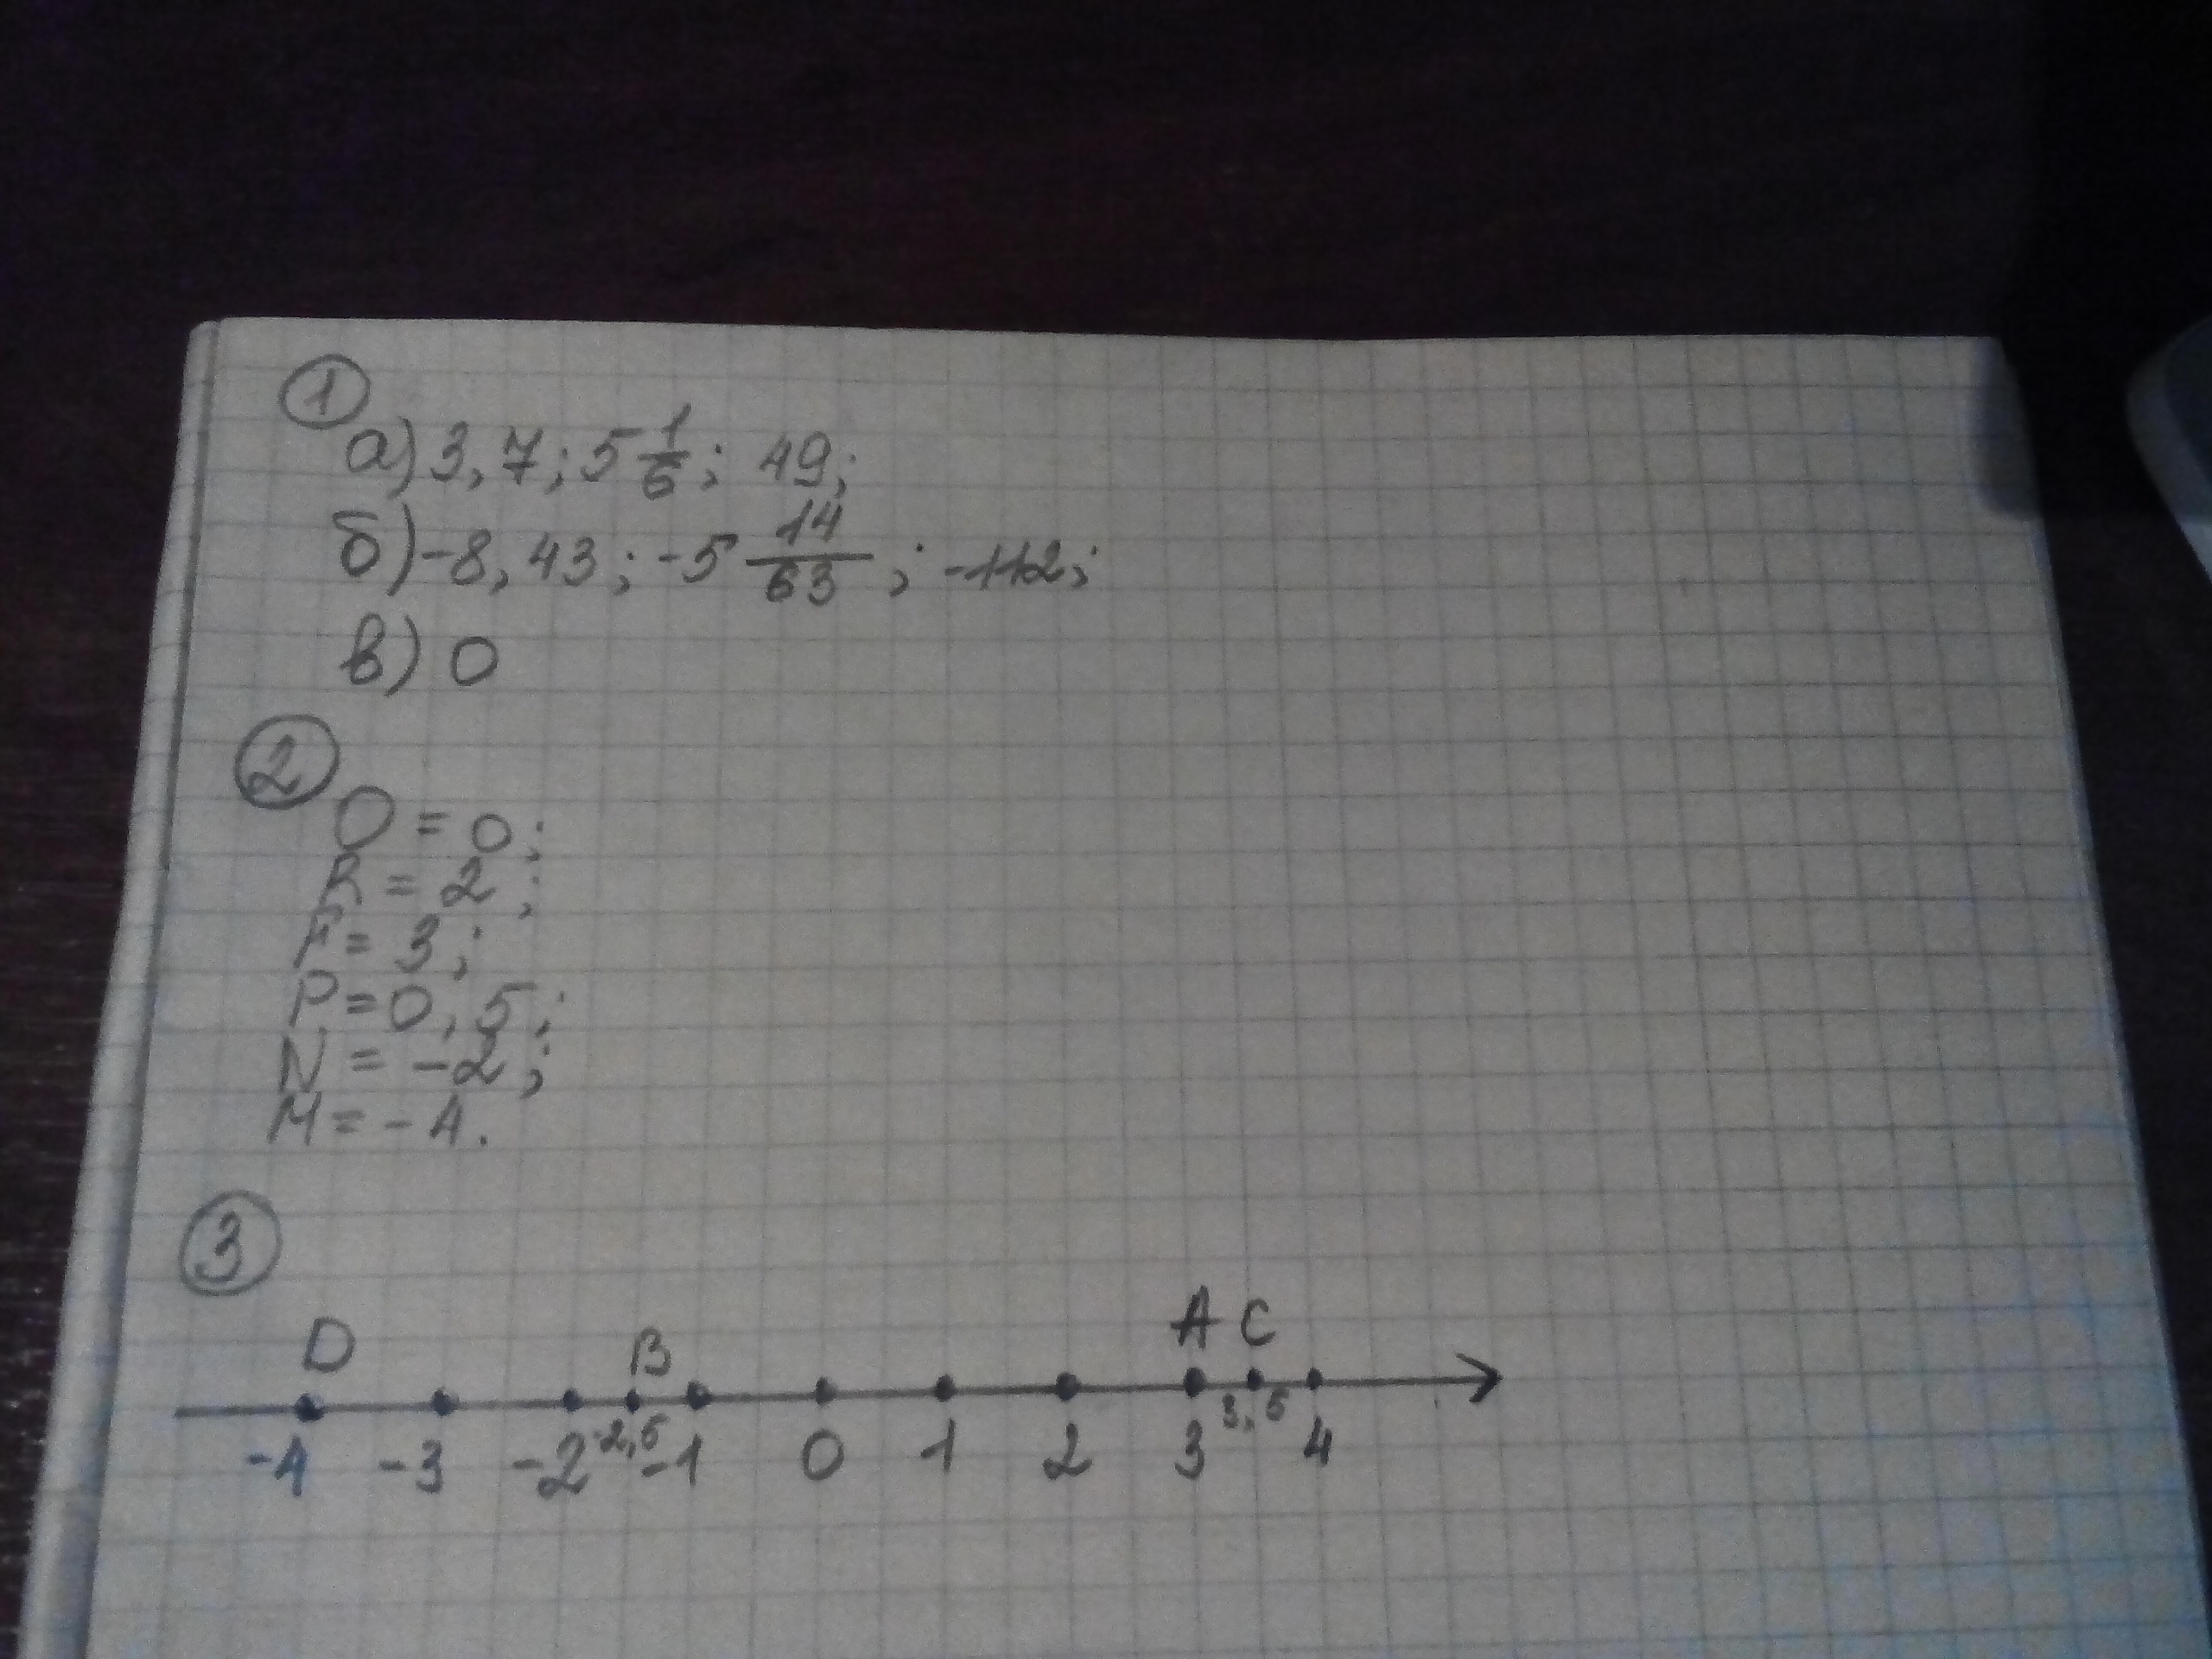 1
а) 3,7; 5 1/6; 49;
б) -8,43; -5 14/63; -112;
в) 0
2
O = 0;
R = 2;
F = 3;
P = 0,5;
N = -2;
M = -4.
3
D B A C
-4 -3 -2 -2,5 -1 0 1 2 3 3,5 4